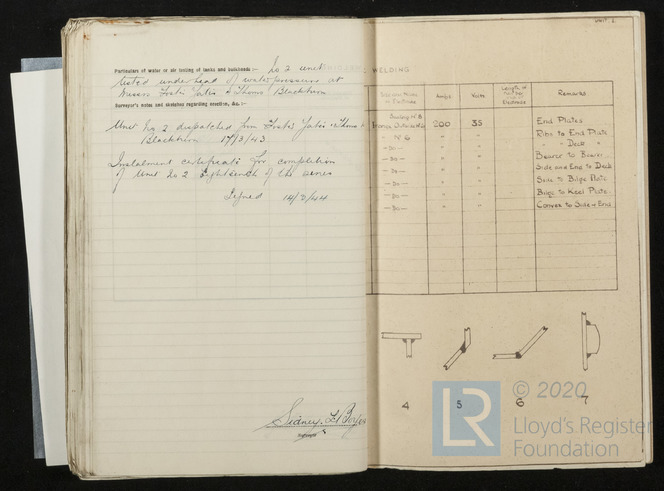 Particulars of water or air testing of tanks and bulkheads :— No 2 unit
tested under head of water pressure at
Messrs Foster Yates & Thoms Blackburn
Surveyor's notes and sketches regarding erection, &c. :—
Unit No 2 dispatched from Foster Yates & Thoms
Blackburn 17/3/43
Instalment certificate for completion
of Unit No 2 Eighteenth of the series
Signed 14/2/44
Sidney F.
Surveyor
Unit. 2.
WELDING
Electrode Amps Volts Length of Electrode Remarks
200 35 End Plates
Nº 6 " " Ribs to End Plate
— Do — " " " " Deck "
— Do — " " Bearer to Beam
— Do — " " Side and End to Deck
— Do — " " Side to Bilge Plate
— Do — " " Bilge to Keel Plate
— Do — " " Canvas to Side & End
4 5 6 7
LR © 2020
Lloyd's Register
Foundation